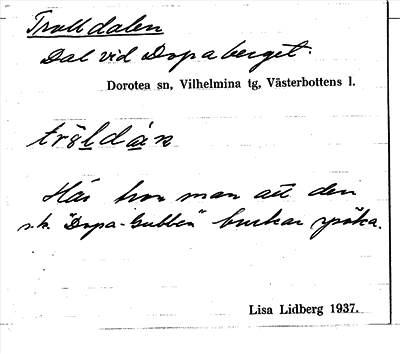 Trolldalen
Dal vid Dopaberget.
Dorotea sn, Vilhelmina tg, Västerbottens l.
tröldán
Här tror man att den
s.k. "Dopa-Gubben" brukar spöka.
Lisa Lidberg 1937.